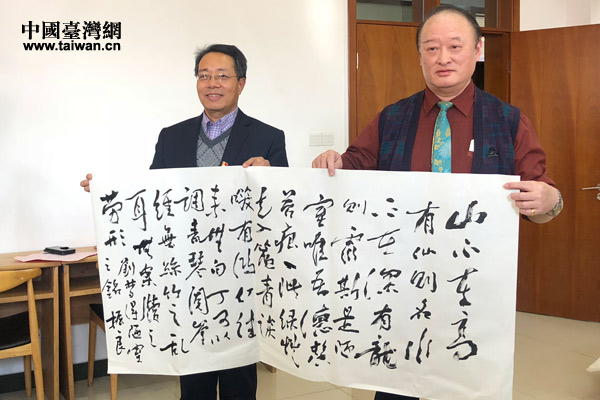 中國臺灣網
www.taiwan.cn
山不在高
有仙則名水
不在深有龍
則靈斯是陋
室唯吾德馨
苔痕上階綠草
色入簾青談
笑有鴻儒往
來無白丁可以
調素琴閱金
經無絲竹之亂
耳無案牘之
勞形
劉禹錫陋室
之銘 振良